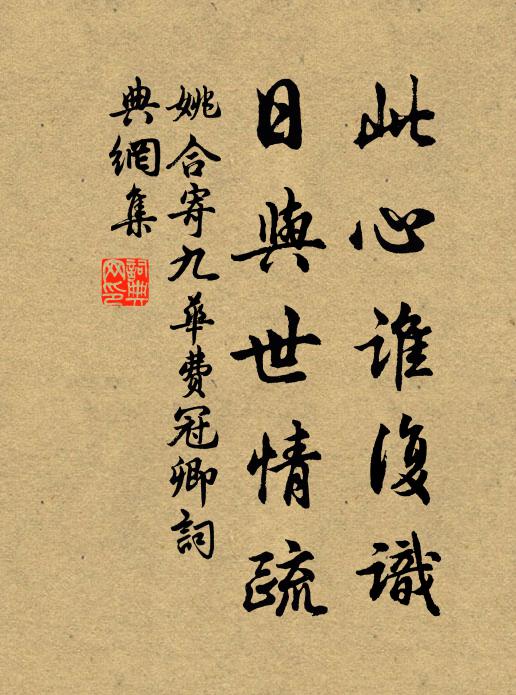 此心誰復識
日與世情疏
姚合寄九華費冠卿詞
典網集
詞典
网印